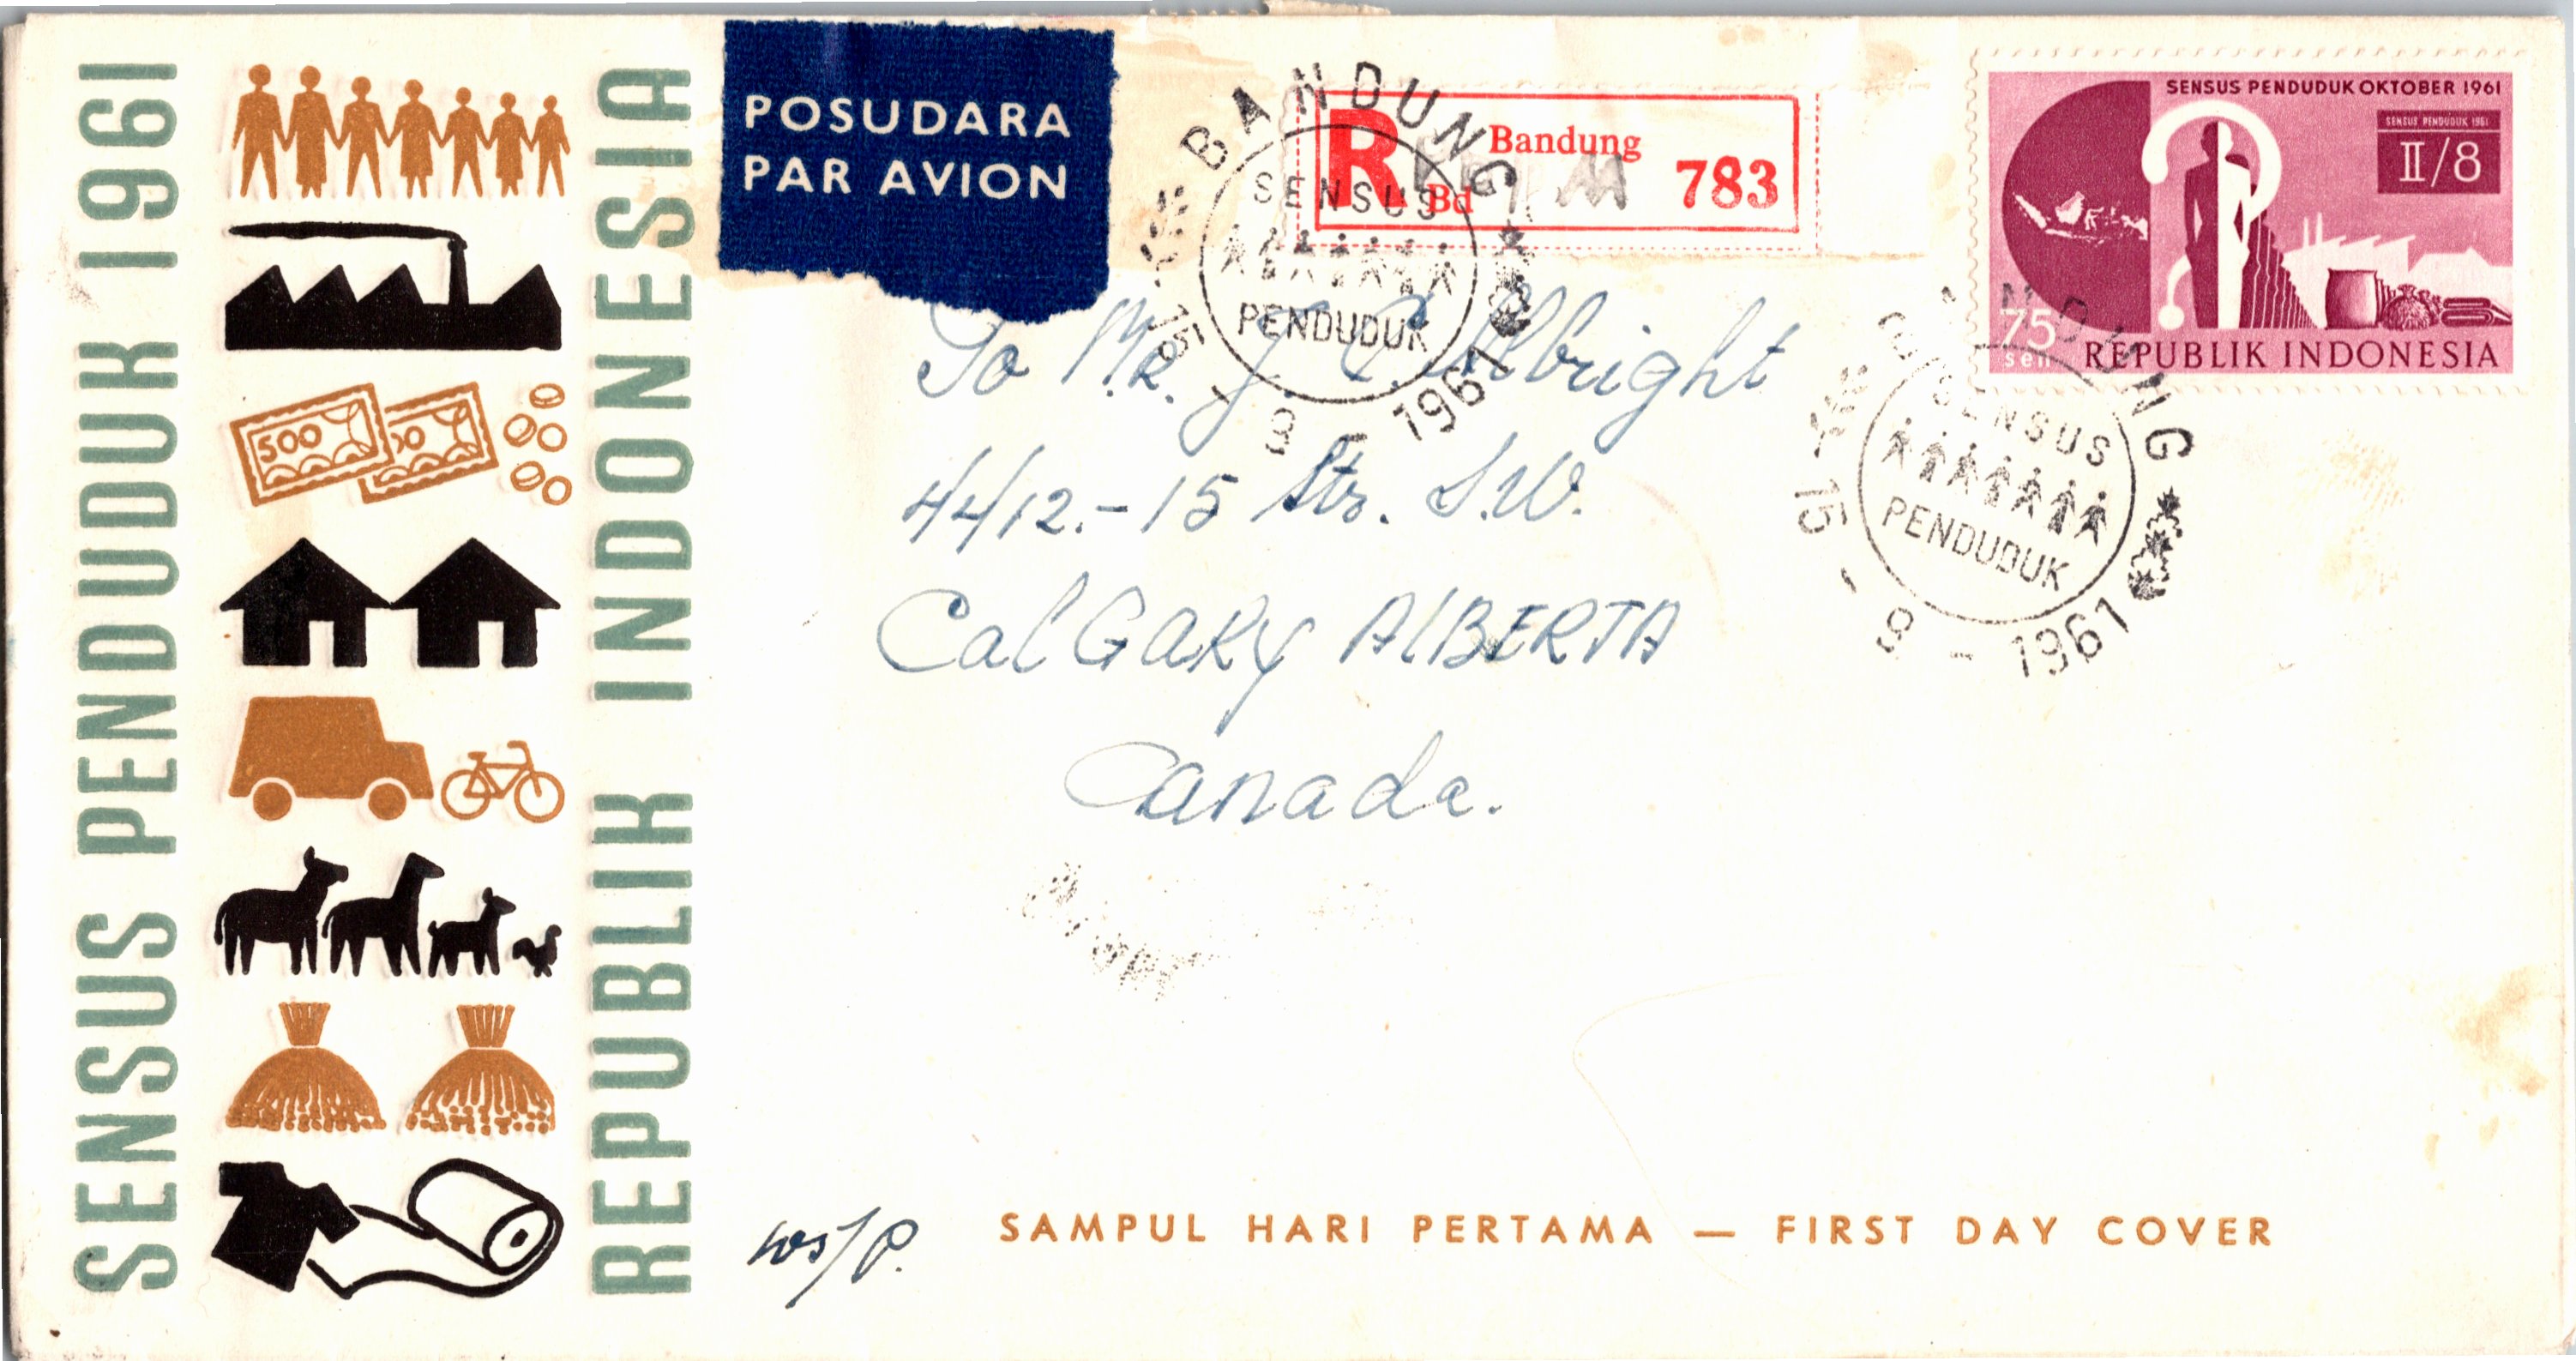 SENSUS PENDUDUK 1961
REPUBLIK INDONESIA
500
POSUDARA
PAR AVION
R Bandung
Bd 783
BANDUNG
SENSUS
PENDUDUK
15 - 9 - 1961
SENSUS PENDUDUK OKTOBER 1961
SENSUS PENDUDUK 1961
II/8
75
sen
REPUBLIK INDONESIA
BANDUNG
SENSUS
PENDUDUK
15 - 9 - 1961
To Mr. J. C. Albright
4412.-15 Str. S.W.
CalGaRy AlBERTA
Canada.
SAMPUL HARI PERTAMA — FIRST DAY COVER